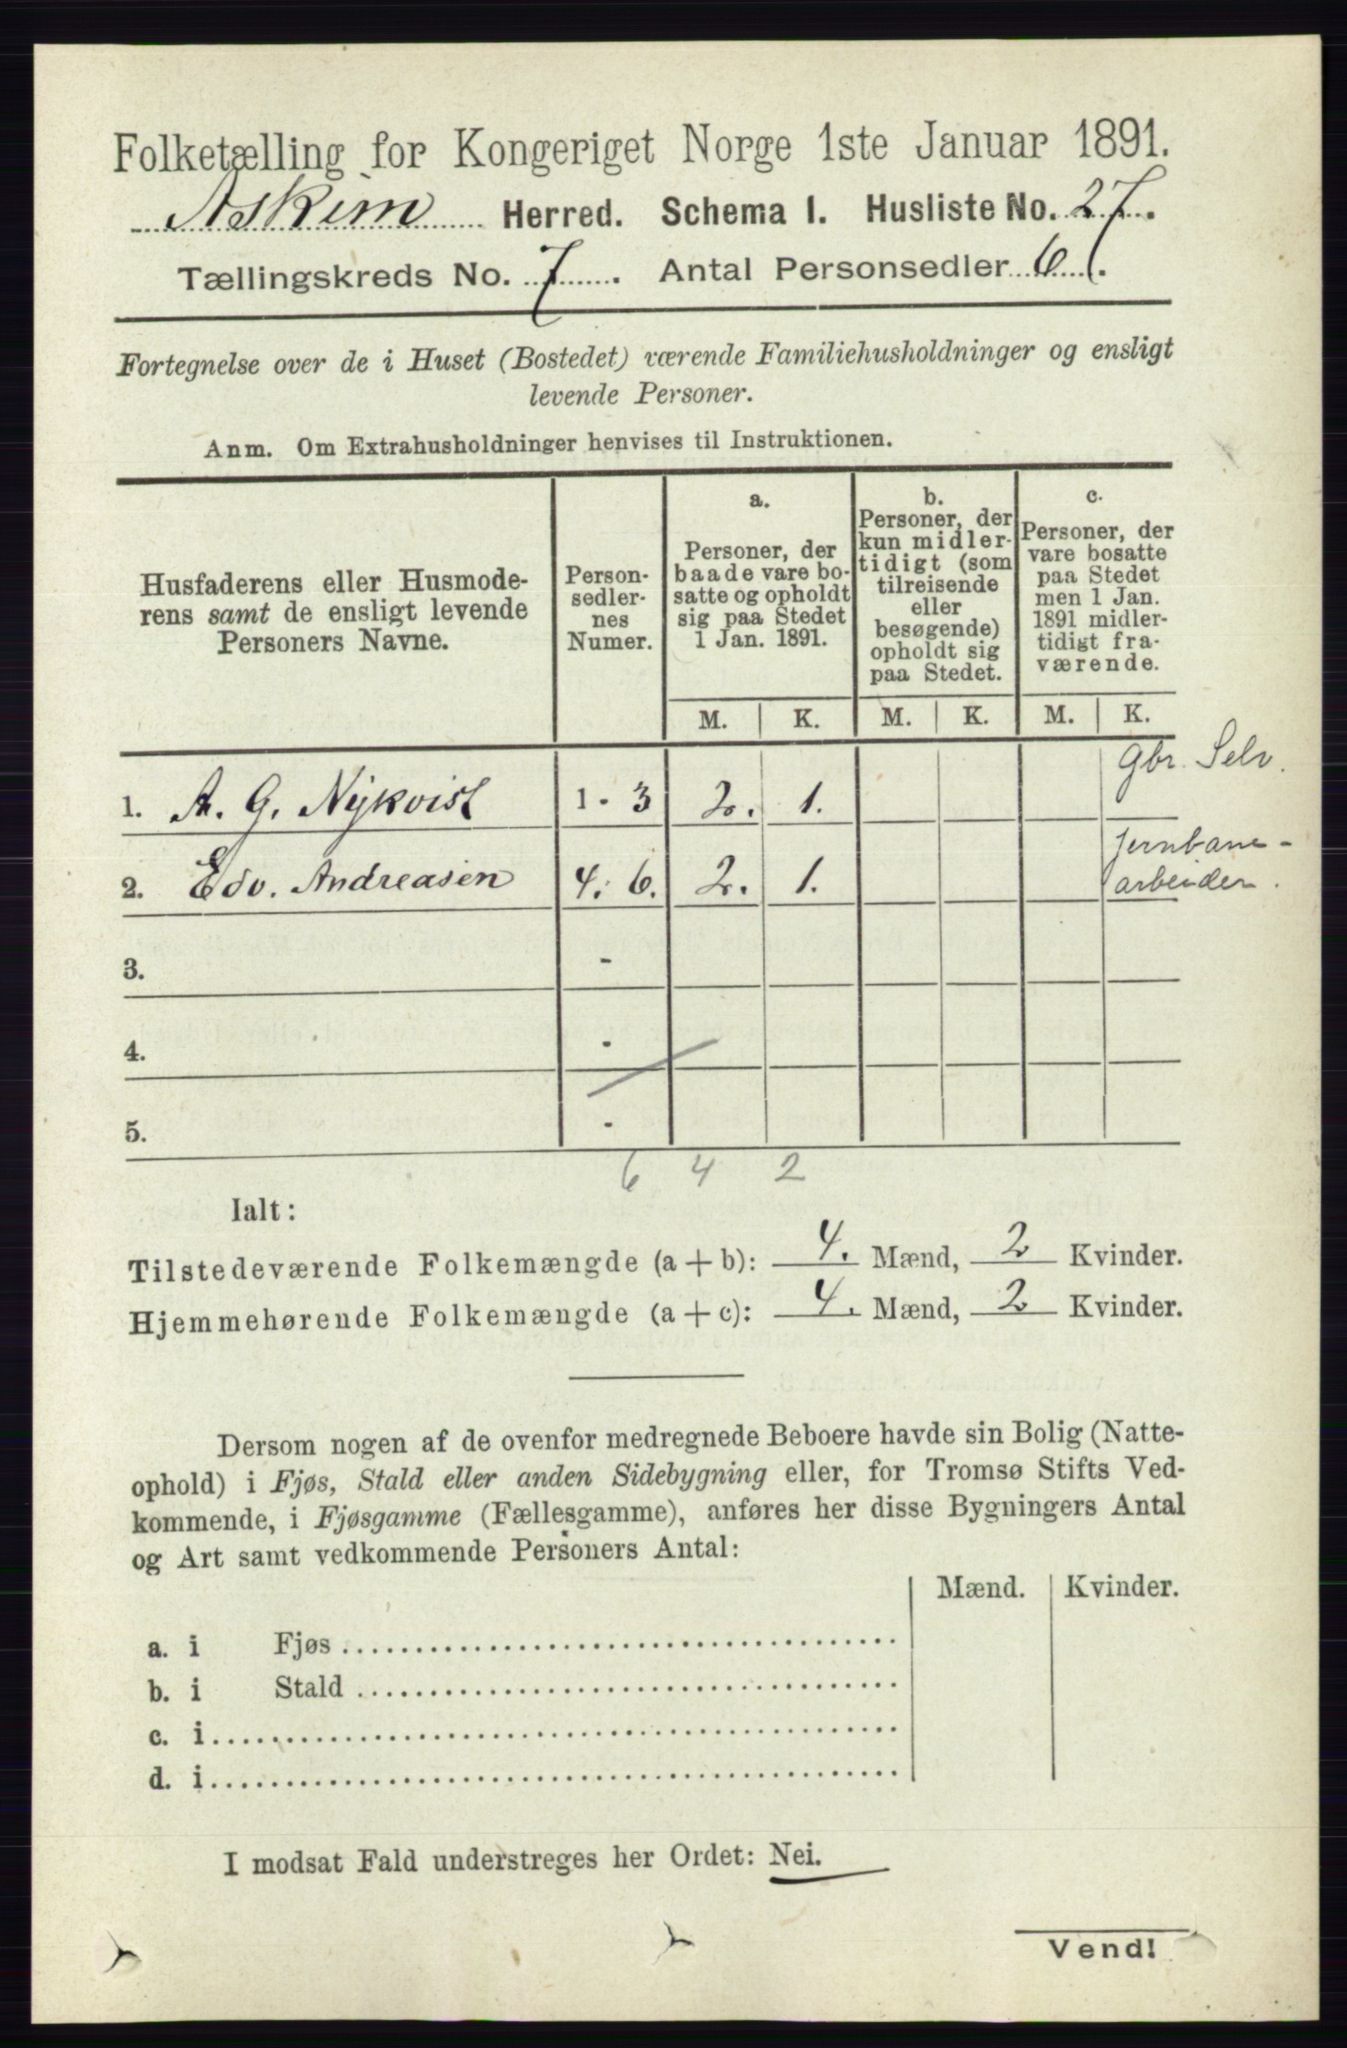 Folketælling for Kongeriget Norge 1ste Januar 1891.
Askim Herred. Schema I. Husliste No. 27.
Tællingskreds No. 7. Antal Personsedler 6.
Fortegnelse over de i Huset (Bostedet) værende Familiehusholdninger og ensligt
levende Personer.
Anm. Om Extrahusholdninger henvises til Instruktionen.
Husfaderens eller Husmode-
rens samt de ensligt levende
Personers Navne.
Person-
sedler-
nes
Numer.
a.
Personer, der
baade vare bo-
satte og opholdt
sig paa Stedet
1 Jan. 1891.
b.
Personer, der
kun midler-
tidigt (som
tilreisende
eller
besøgende)
opholdt sig
paa Stedet.
c.
Personer, der
vare bosatte
paa Stedet
men 1 Jan.
1891 midler-
tidigt fra-
værende.
M. K. M. K. M. K.
1. A. G. Nykvist 1 - 3 2. 1. gbr. Selv.
2. Edv. Andreasen 4. 6. 2. 1. jernbane-
arbeider.
3. -
4. -
5. -
6 4 2
Ialt:
Tilstedeværende Folkemængde (a + b): 4. Mænd, 2 Kvinder.
Hjemmehørende Folkemængde (a + c): 4. Mænd, 2 Kvinder.
Dersom nogen af de ovenfor medregnede Beboere havde sin Bolig (Natte-
ophold) i Fjøs, Stald eller anden Sidebygning eller, for Tromsø Stifts Ved-
kommende, i Fjøsgamme (Fællesgamme), anføres her disse Bygningers Antal
og Art samt vedkommende Personers Antal:
Mænd. Kvinder.
a. i Fjøs
b. i Stald
c. i
d. i
I modsat Fald understreges her Ordet: Nei.
Vend!